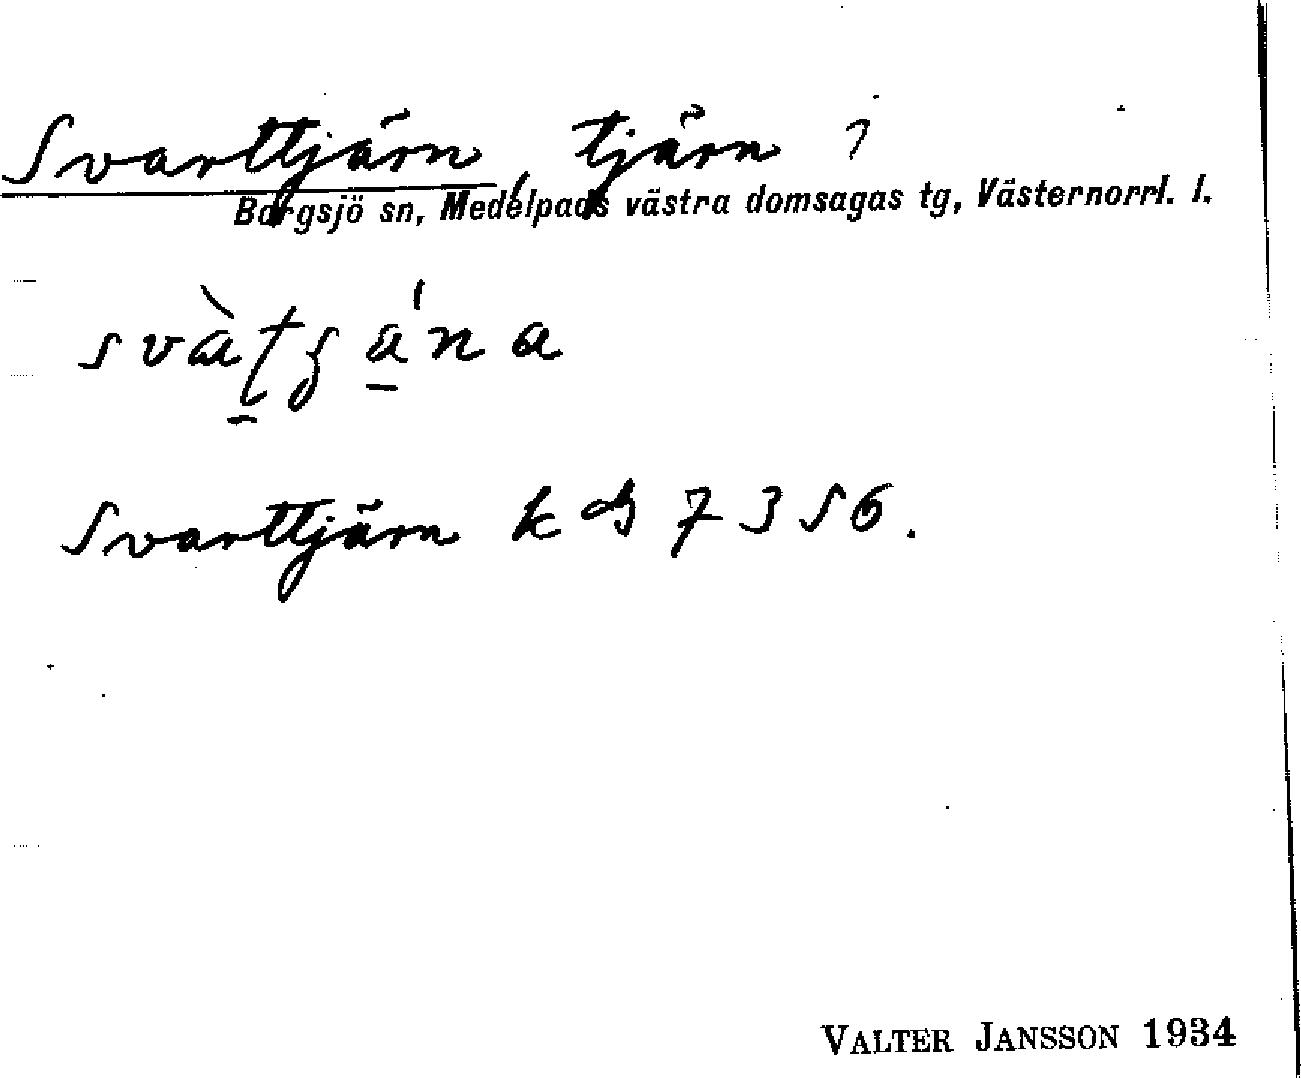 Svarttjärn, tjärn ?
Borgsjö sn, Medelpads västra domsagas tg, Västernorrl. l.
Svarttjärn k 7356.
VALTER JANSSON 1934